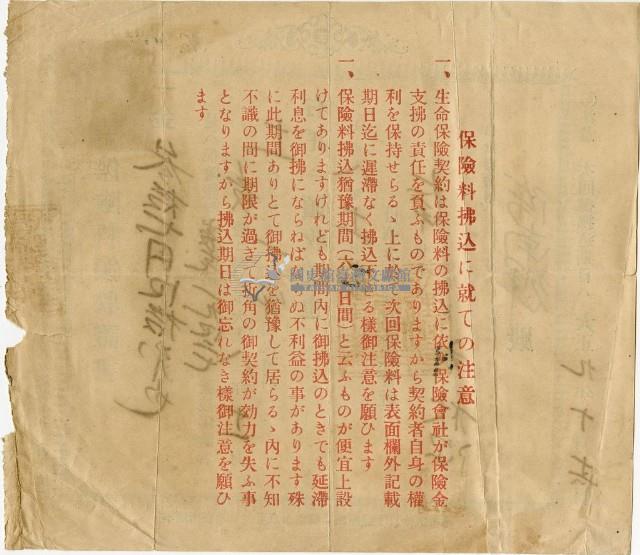 保險料拂込に就ての注意
一、生命保險契約は保險料の拂込に依り保險會社が保險金
支拂の責任を負ふものでありますから契約者自身の權
利を保持せらるゝ上に於て次回保險料は表面欄外記載
期日迄に遲滯なく拂込下さる樣御注意を願ひます
一、保險料拂込猶豫期間(六 日間)と云ふものが便宜上設
けてありますけれども期間內に御拂込のときでも延滯
利息を御拂にならねばならぬ不利益の事があります殊
に此期間ありとて御拂込を猶豫して居らるゝ內に不知
不識の間に期限が過ぎて折角の御契約が効力を失ふ事
となりますから拂込期日は御忘れなき樣御注意を願ひ
ます
國史館臺灣文獻館